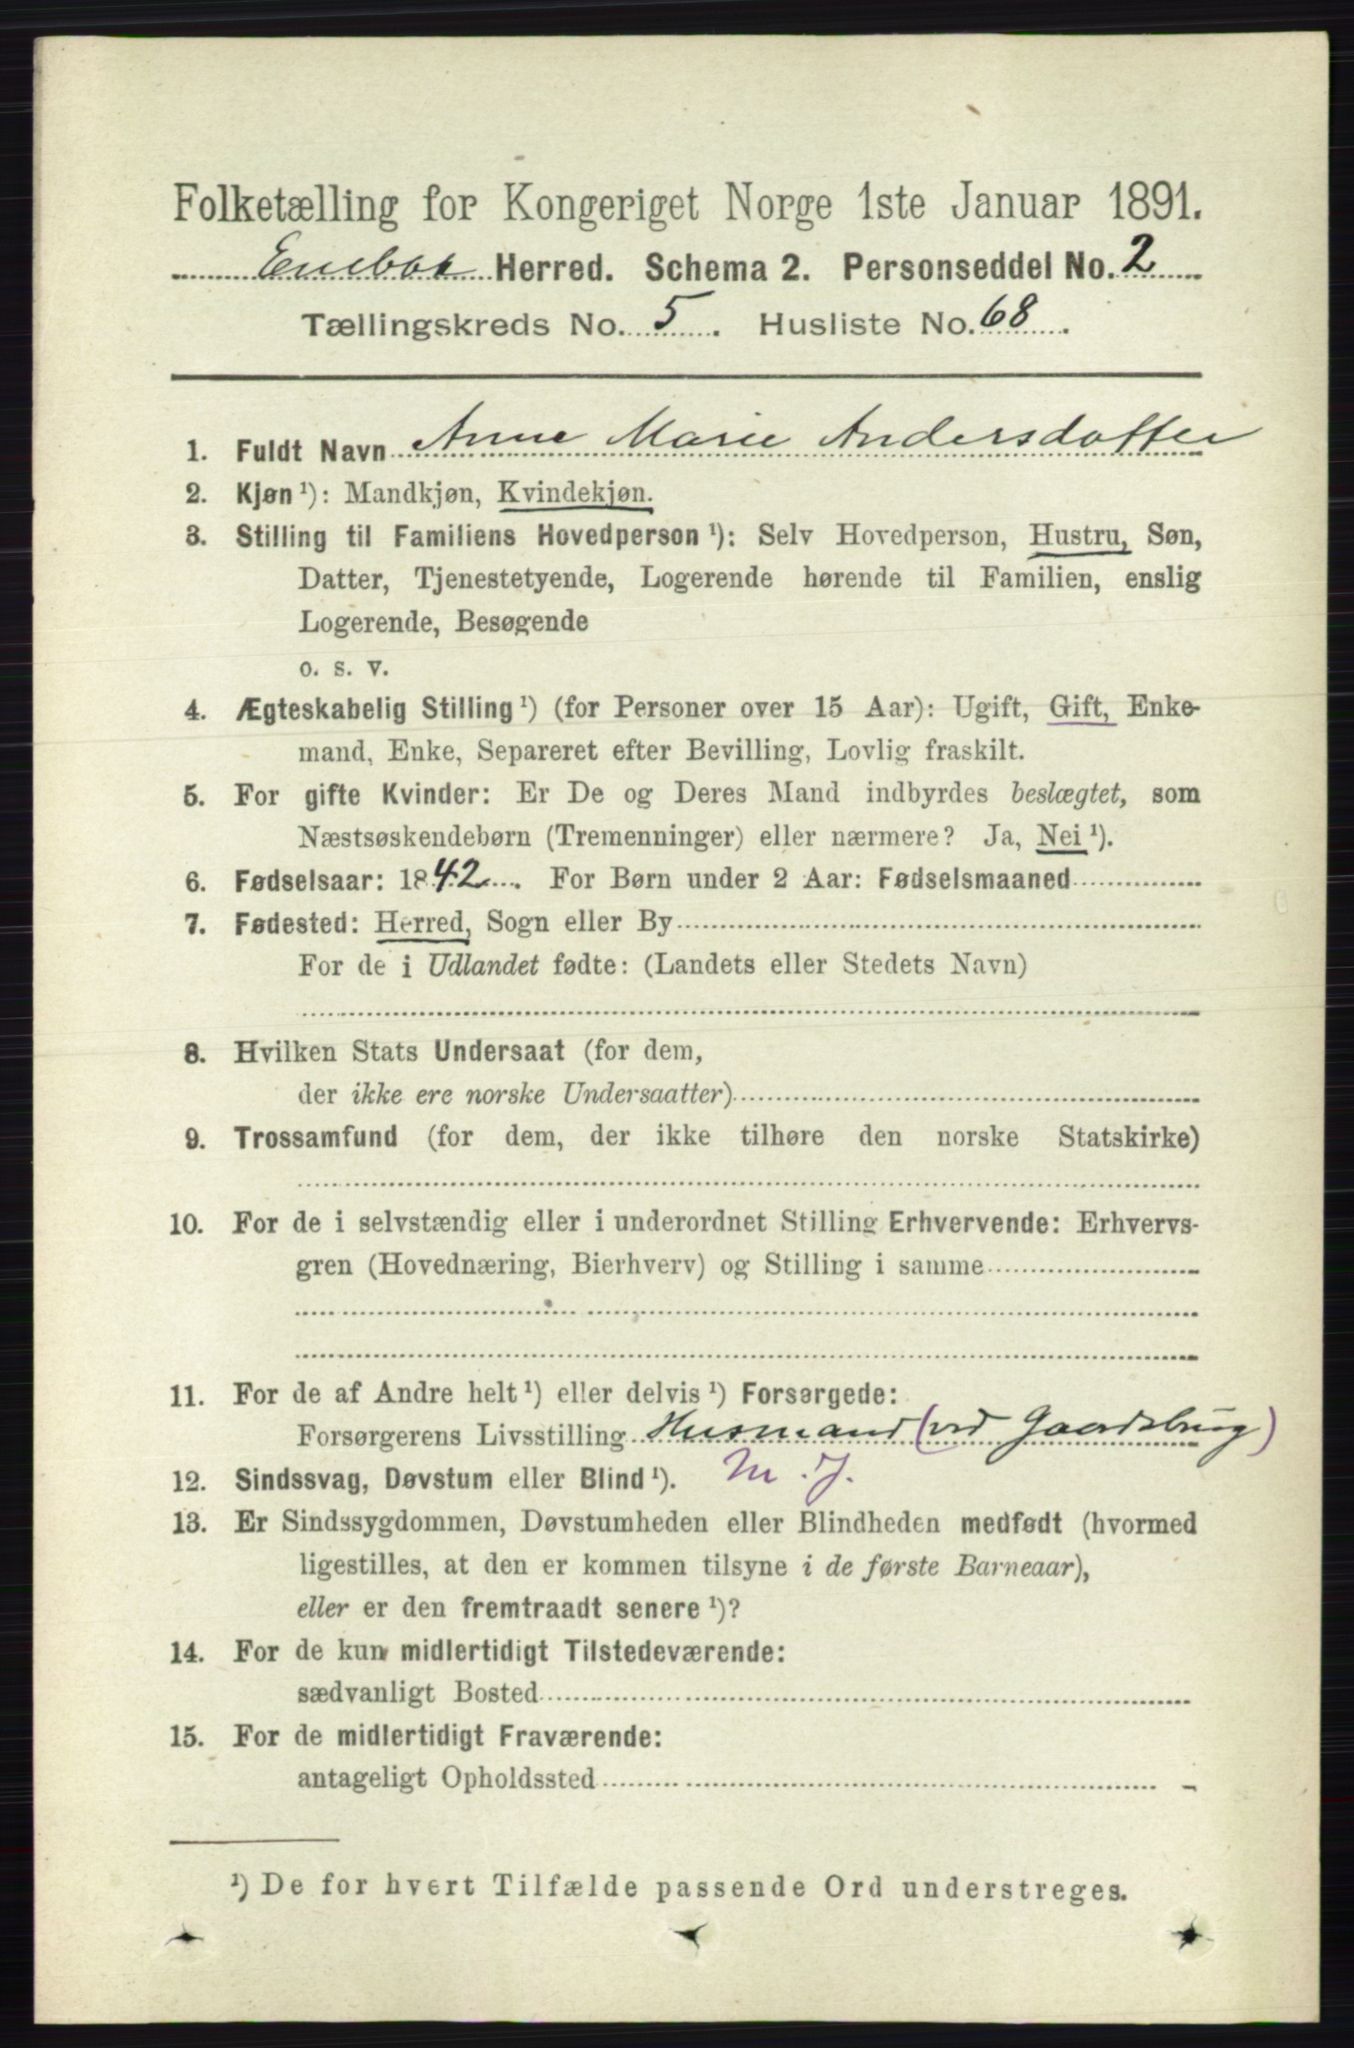 Folketælling for Kongeriget Norge 1ste Januar 1891.
Enebak Herred. Schema 2. Personseddel No. 2
Tællingskreds No. 5. Husliste No. 68.
1. Fuldt Navn Anne Marie Andersdatter
2. Kjøn ¹): Mandkjøn, Kvindekjøn.
3. Stilling til Familiens Hovedperson ¹): Selv Hovedperson, Hustru, Søn,
Datter, Tjenestetyende, Logerende hørende til Familien, enslig
Logerende, Besøgende
o. s. v.
4. Ægteskabelig Stilling ¹) (for Personer over 15 Aar): Ugift, Gift, Enke-
mand, Enke, Separeret efter Bevilling, Lovlig fraskilt.
5. For gifte Kvinder: Er De og Deres Mand indbyrdes beslægtet, som
Næstsøskendebørn (Tremenninger) eller nærmere? Ja, Nei ¹).
6. Fødselsaar: 1842. For Børn under 2 Aar: Fødselsmaaned
7. Fødested: Herred, Sogn eller By
For de i Udlandet fødte: (Landets eller Stedets Navn)
8. Hvilken Stats Undersaat (for dem,
der ikke ere norske Undersaatter)
9. Trossamfund (for dem, der ikke tilhøre den norske Statskirke)
10. For de i selvstændig eller i underordnet Stilling Erhvervende: Erhvervs-
gren (Hovednæring, Bierhverv) og Stilling i samme
11. For de af Andre helt ¹) eller delvis ¹) Forsørgede:
Forsørgerens Livsstilling Husmand (ved Gaardsbrug)
12. Sindssvag, Døvstum eller Blind ¹). M. J.
13. Er Sindssygdommen, Døvstumheden eller Blindheden medfødt (hvormed
ligestilles, at den er kommen tilsyne i de første Barneaar),
eller er den fremtraadt senere ¹)?
14. For de kun midlertidigt Tilstedeværende:
sædvanligt Bosted
15. For de midlertidigt Fraværende:
antageligt Opholdssted
¹) De for hvert Tilfælde passende Ord understreges.